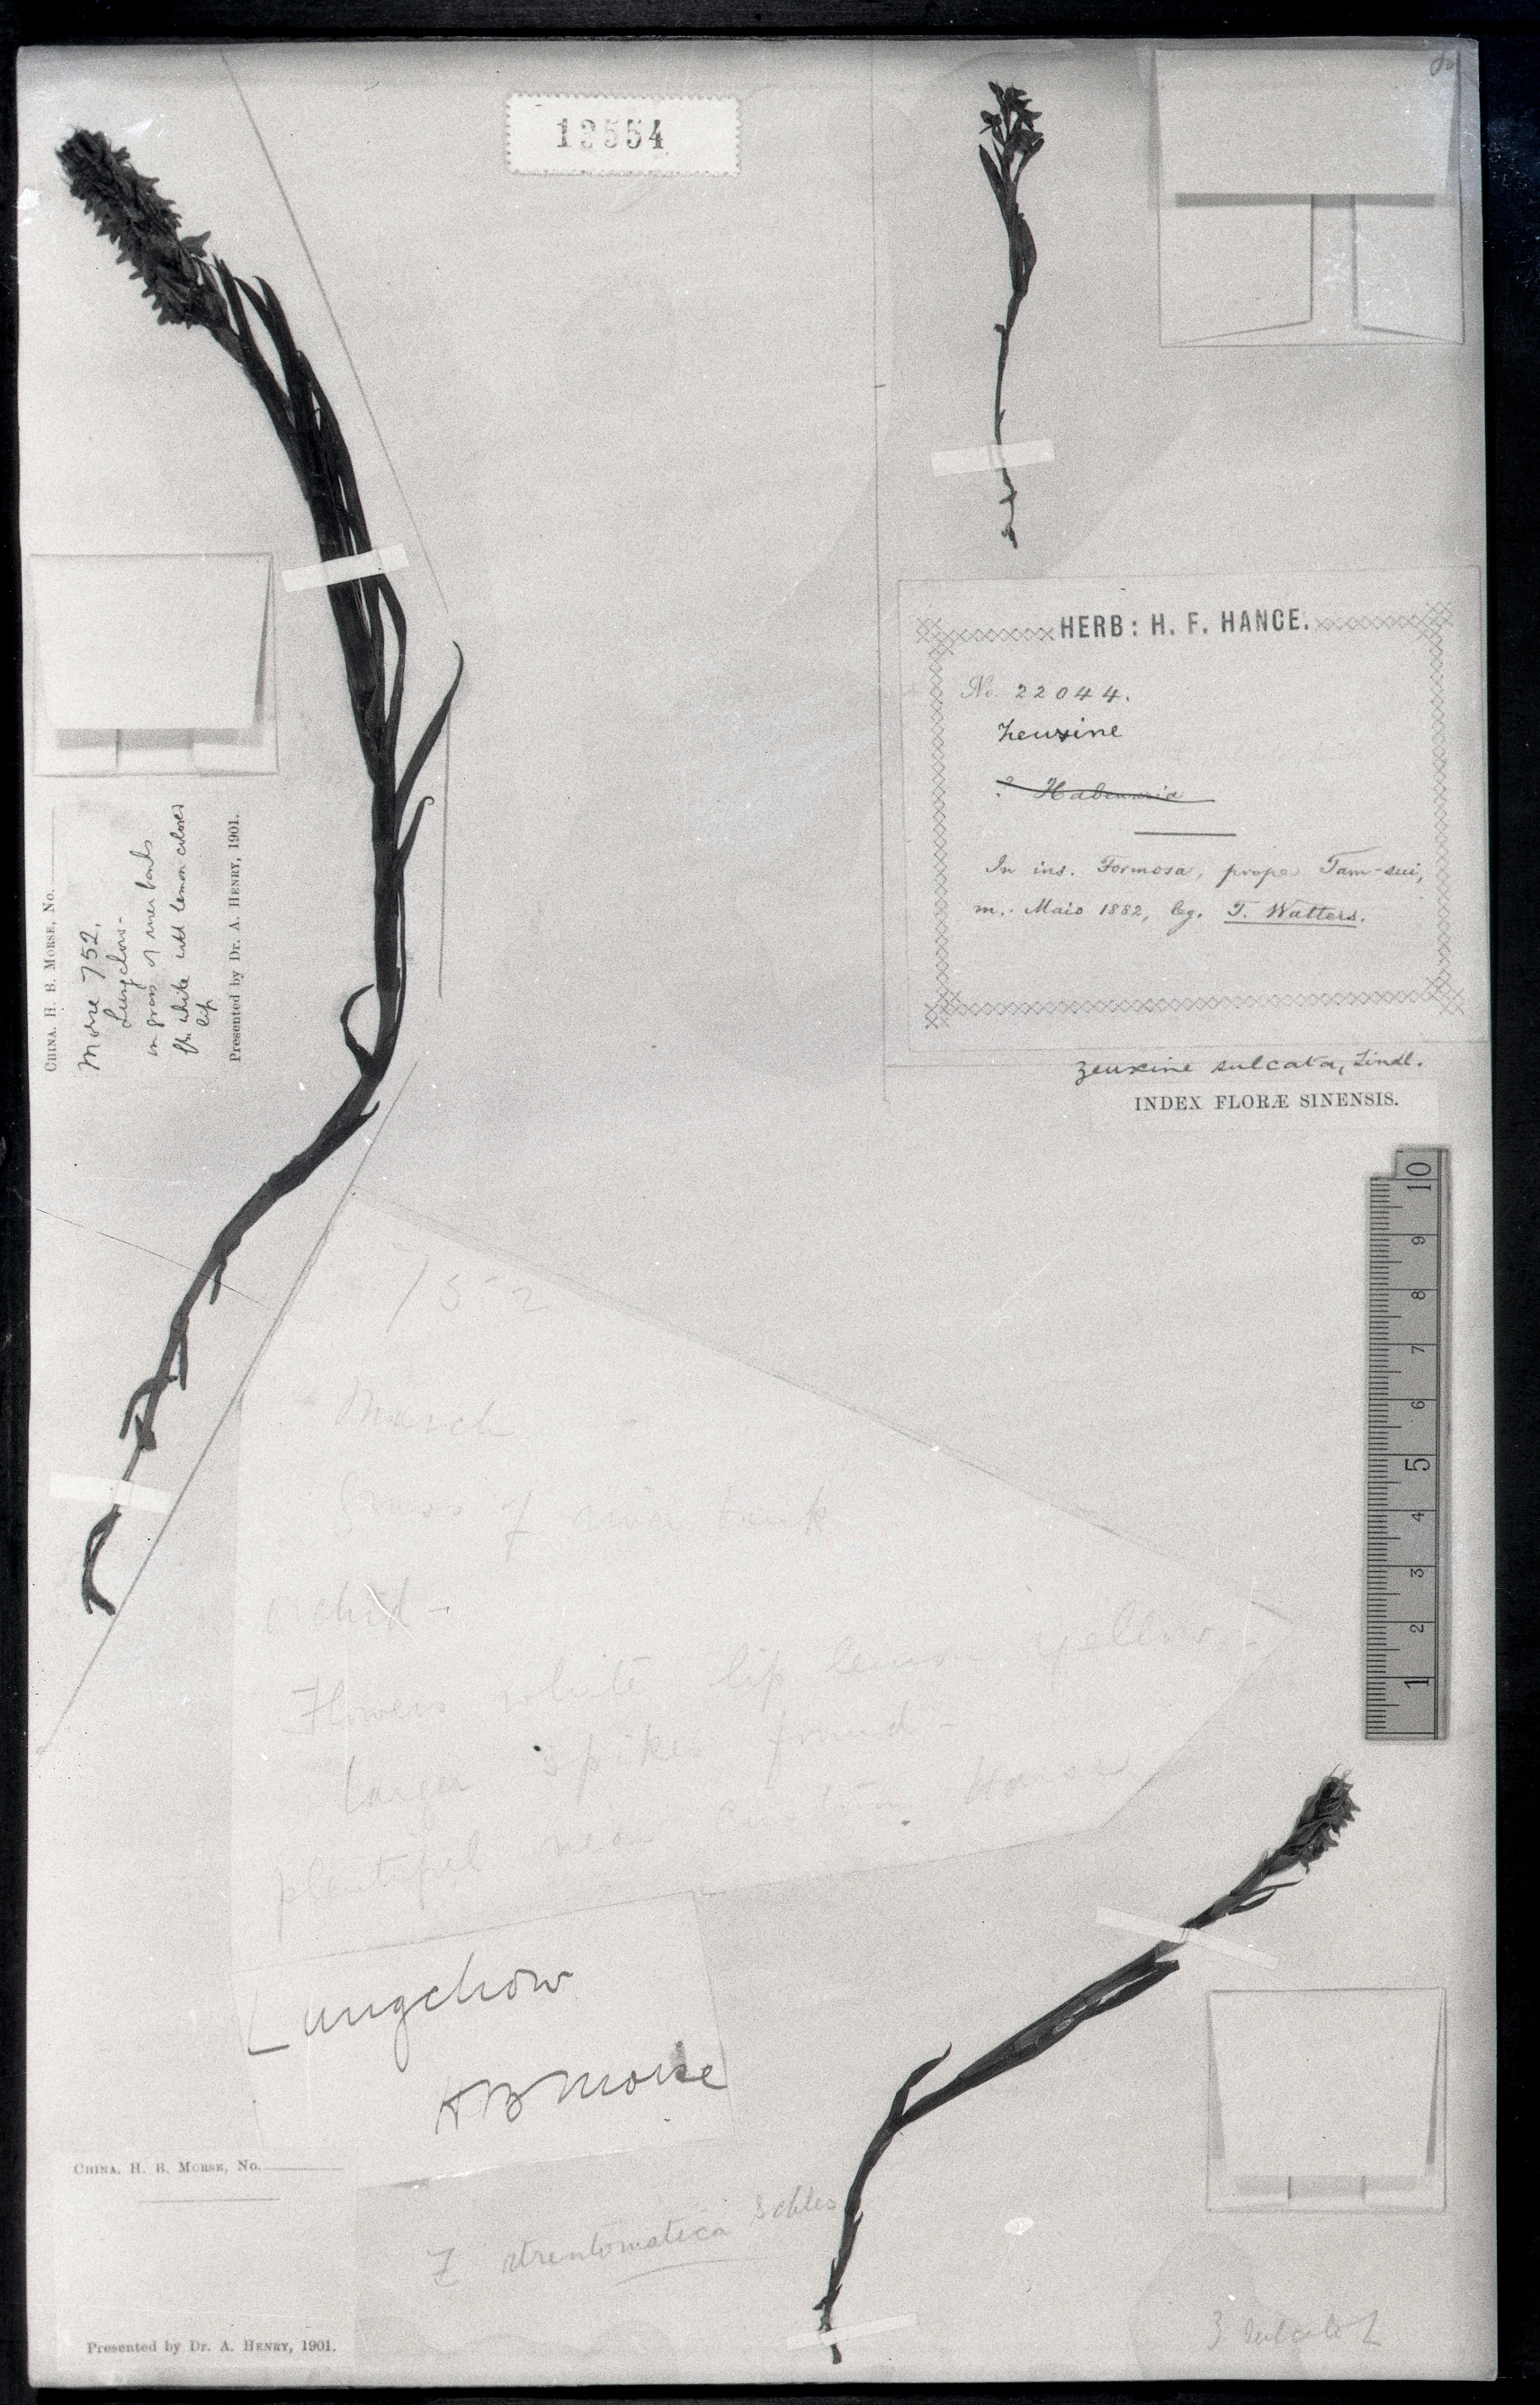 19554
HERB: H. F. HANCE.
No. 22044.
Zeuxine
? Habenaria
In ins. Formosa, prope Tam-sui,
m. Maio 1882, leg. T. Watters.
Zeuxine sulcata, Lindl.
INDEX FLORÆ SINENSIS.
CHINA. H. B. MORSE, No.
Morse 752.
Lungchow-
in grass of river banks
fls. white with lemon colored
lip
Presented by Dr. A. HENRY, 1901.
752
March
Grass of river bank
orchid -
Flowers white lip lemon yellow -
larger spikes found
plentiful near Custom House
Lungchow
H B Morse
CHINA. H. B. MORSE, No.
Presented by Dr. A. HENRY, 1901.
Z
10
9
8
7
6
5
4
3
2
1